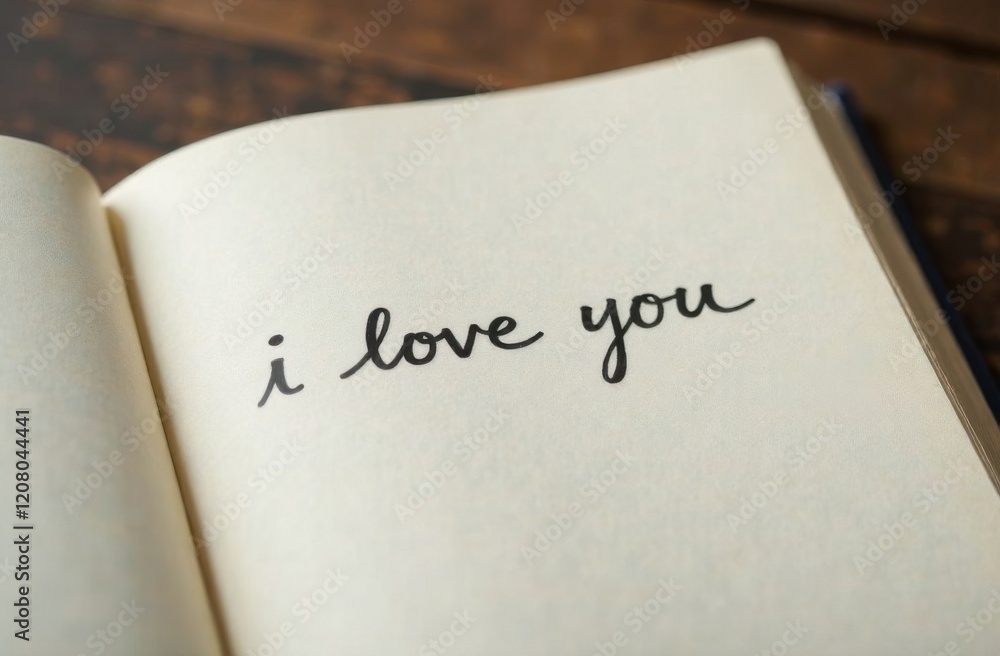 i love you
Adobe Stock | #1208044441